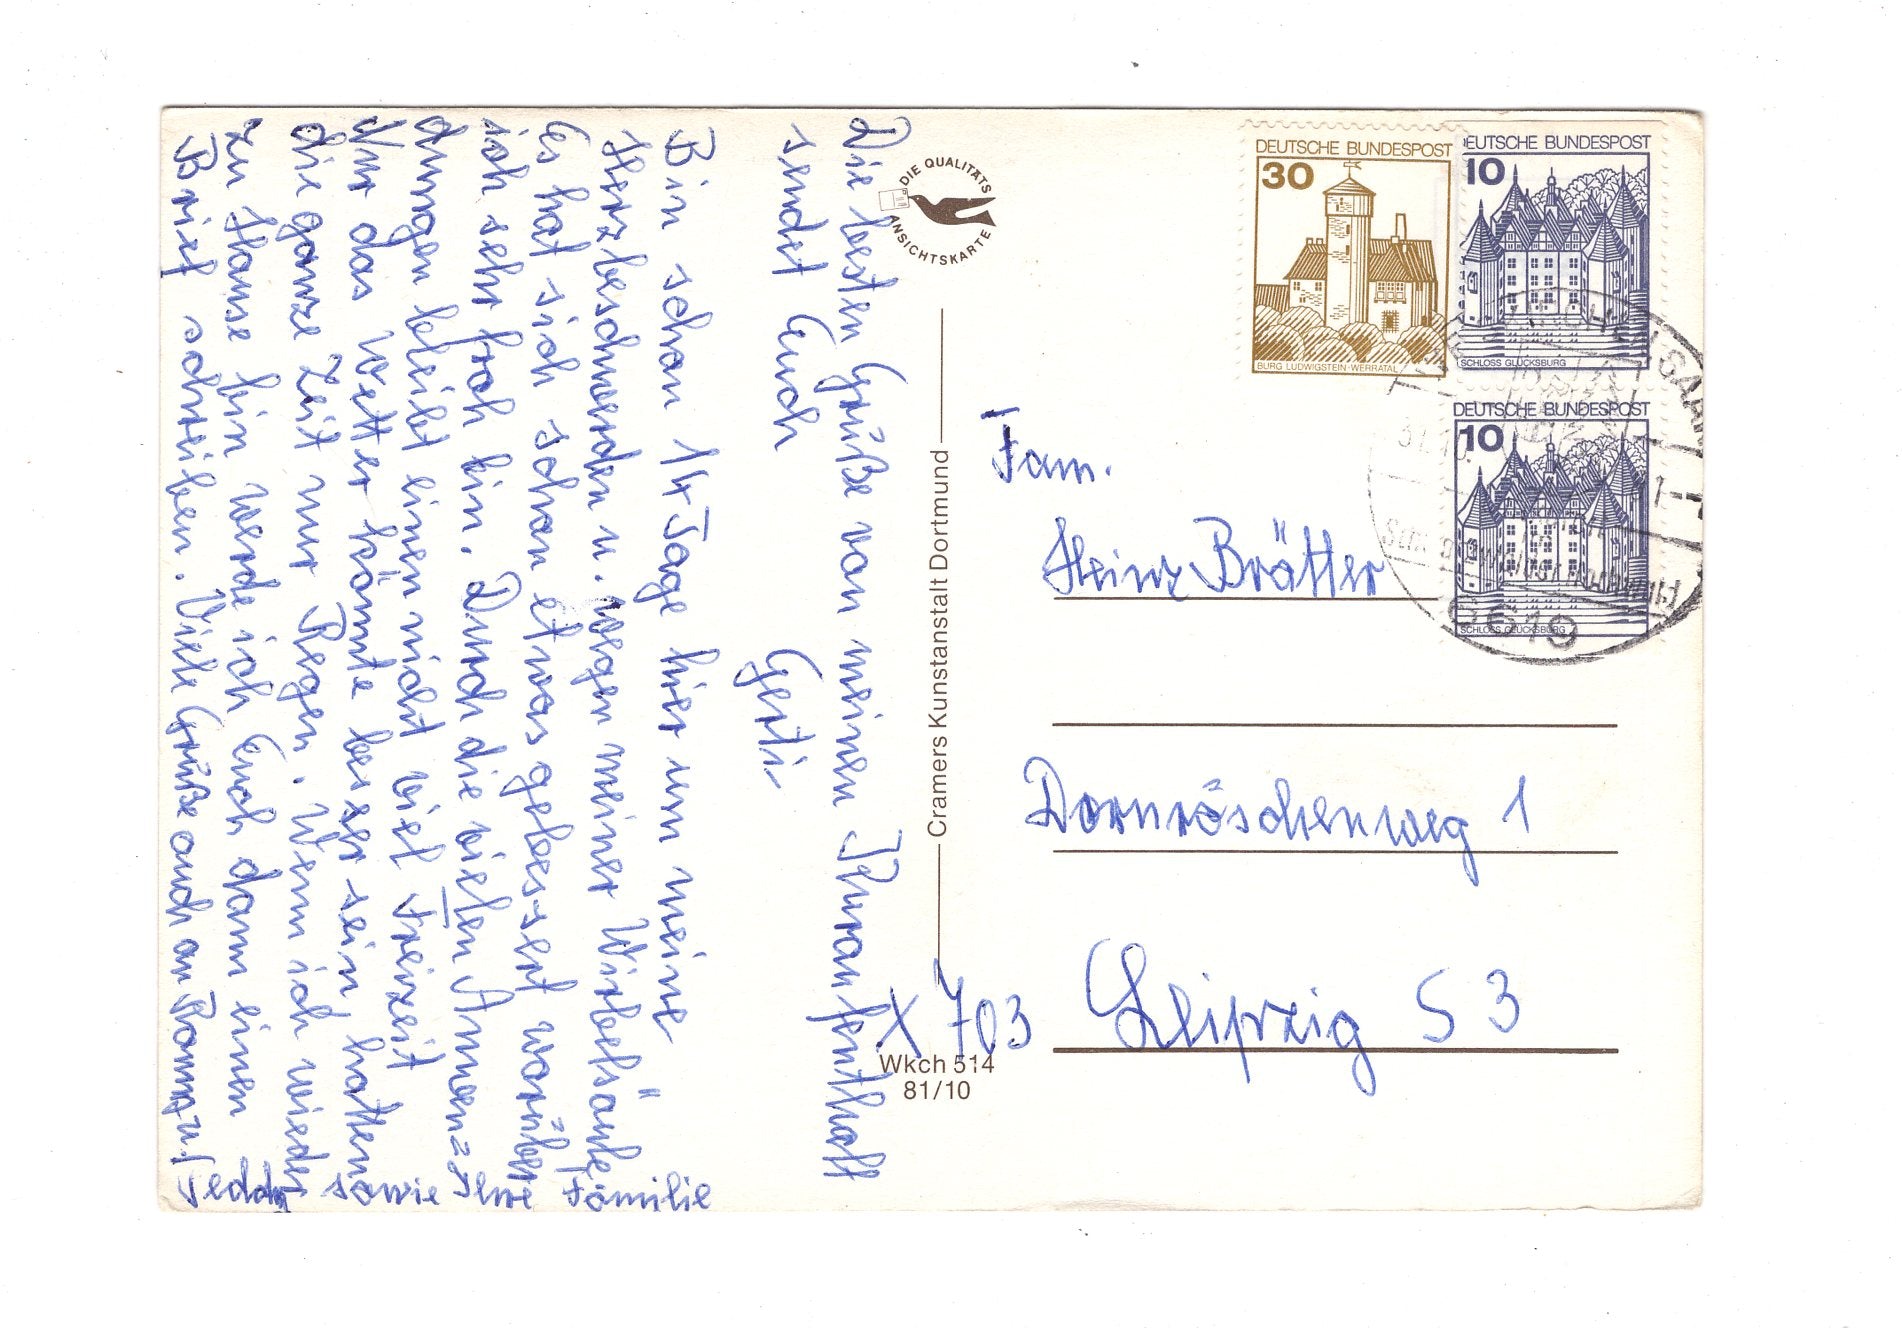 Die besten Grüße von meinem Kuraufenthalt
sendet Euch
Gerti
Bin schon 14 Tage hier um meine
Herzbeschwerden u. wegen meiner Wirbelsäule
Es hat sich schon etwas gebessert worüber
ich sehr froh bin. Durch die vielen Anwen=
dungen bleibt einen nicht viel Freizeit
Nur das Wetter könnte besser sein hatten
die ganze Zeit nur Regen. Wenn ich wieder
zu Hause bin werde ich Euch dann einen
Brief schreiben. Viele Grüße auch an
Teddy sowie Ihre Familie
DIE QUALITÄTS
ANSICHTSKARTE
Cramers Kunstanstalt Dortmund
Wkch 514
81/10
DEUTSCHE BUNDESPOST
30
BURG LUDWIGSTEIN · WERRATAL
DEUTSCHE BUNDESPOST
10
SCHLOSS GLÜCKSBURG
DEUTSCHE BUNDESPOST
10
SCHLOSS GLÜCKSBURG
6619
Fam.
Heinz Brätter
Dornröschenweg 1
X 703 Leipzig S 3